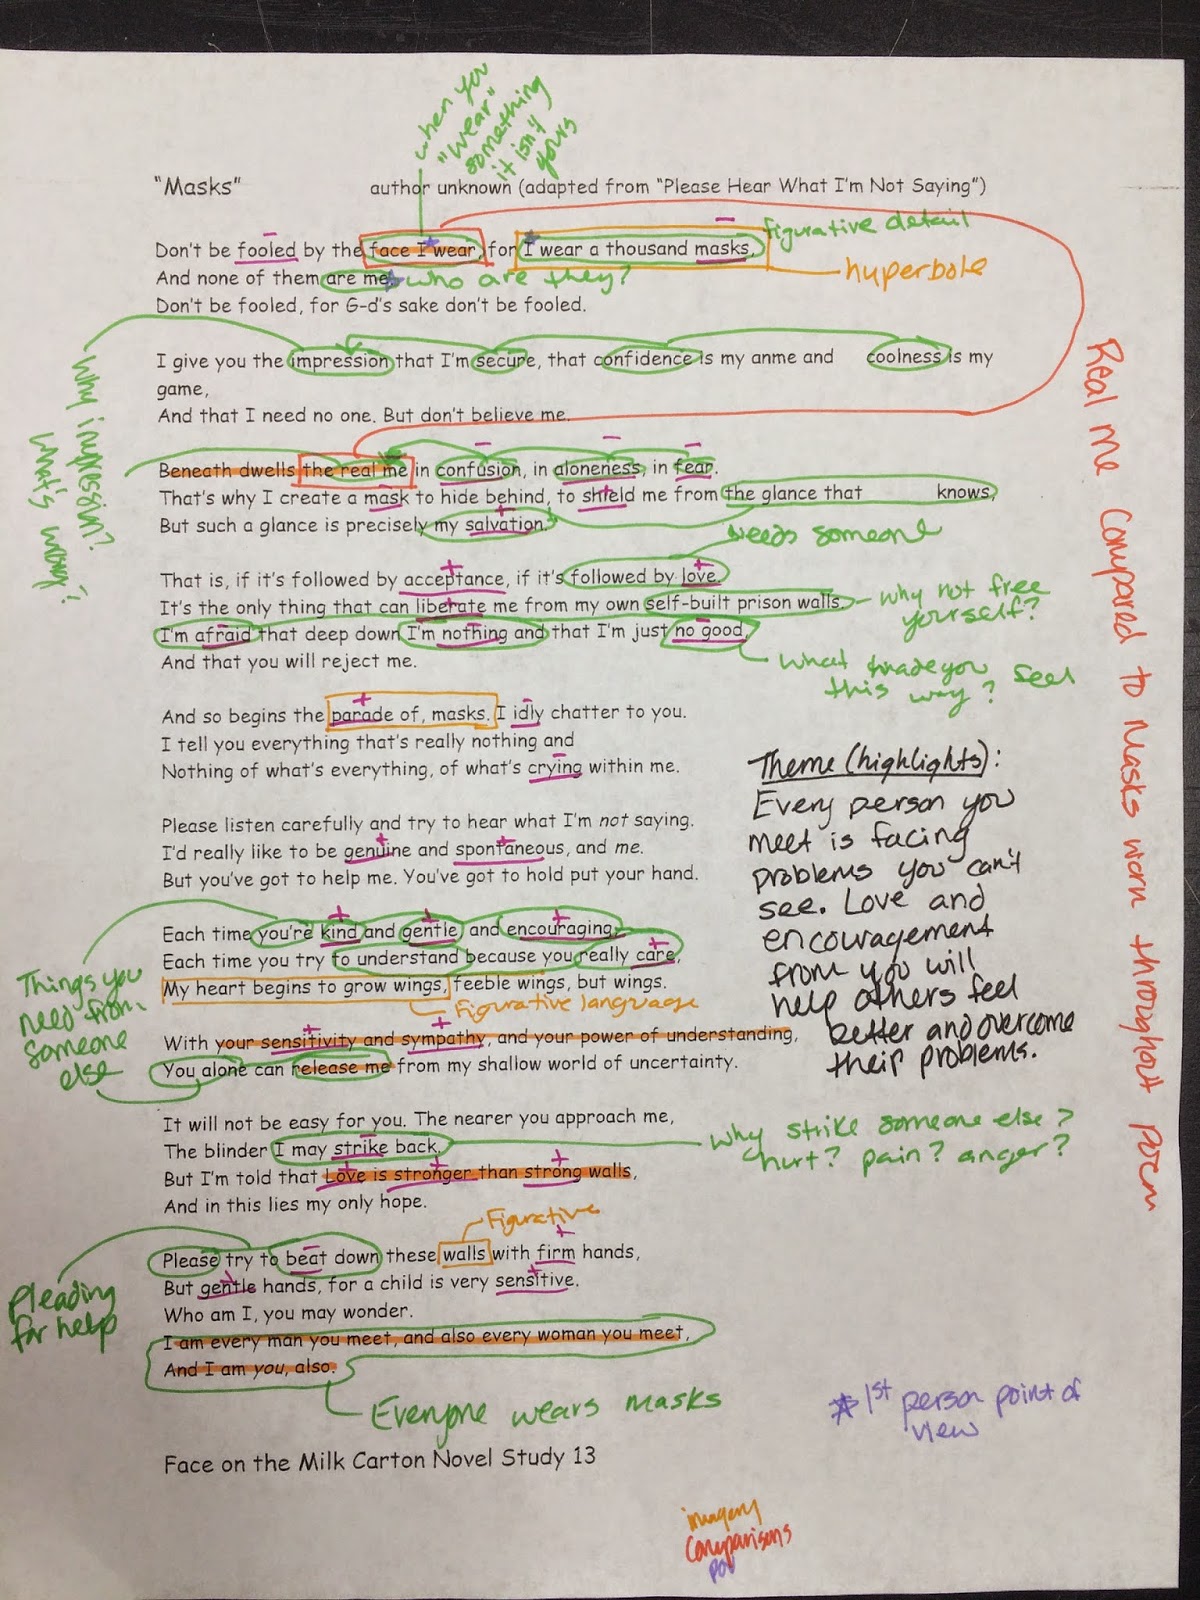 when you
"wear"
something
it isn't
yours
"Masks" author unknown (adapted from "Please Hear What I'm Not Saying")
figurative detail
Don't be fooled by the face I wear, for I wear a thousand masks,
hyperbole
And none of them are me
who are they?
Don't be fooled, for G-d's sake don't be fooled.
I give you the impression that I'm secure, that confidence is my anme and coolness is my
game,
And that I need no one. But don't believe me.
Why impression?
What's wrong?
Beneath dwells the real me in confusion, in aloneness, in fear.
That's why I create a mask to hide behind, to shield me from the glance that knows,
But such a glance is precisely my salvation.
needs someone
That is, if it's followed by acceptance, if it's followed by love.
It's the only thing that can liberate me from my own self-built prison walls.
why not free
yourself?
I'm afraid that deep down I'm nothing and that I'm just no good,
And that you will reject me.
What made you feel
this way?
And so begins the parade of, masks. I idly chatter to you.
I tell you everything that's really nothing and
Nothing of what's everything, of what's crying within me.
Please listen carefully and try to hear what I'm not saying.
I'd really like to be genuine and spontaneous, and me.
But you've got to help me. You've got to hold put your hand.
Theme (highlights):
Every person you
meet is facing
problems you can't
see. Love and
encouragement
from you will
help others feel
better and overcome
their problems.
Real me Compared to Masks worn throughout poem
Each time you're kind and gentle and encouraging,
Each time you try to understand because you really care,
My heart begins to grow wings, feeble wings, but wings.
Figurative language
Things you
need from
someone
else
With your sensitivity and sympathy, and your power of understanding,
You alone can release me from my shallow world of uncertainty.
It will not be easy for you. The nearer you approach me,
The blinder I may strike back.
why strike someone else?
hurt? pain? anger?
But I'm told that Love is stronger than strong walls,
And in this lies my only hope.
Figurative
Please try to beat down these walls with firm hands,
But gentle hands, for a child is very sensitive.
Pleading
for help
Who am I, you may wonder.
I am every man you meet, and also every woman you meet,
And I am you, also.
Everyone wears masks
* 1st person point of
view
Face on the Milk Carton Novel Study 13
imagery
Comparisons
POV